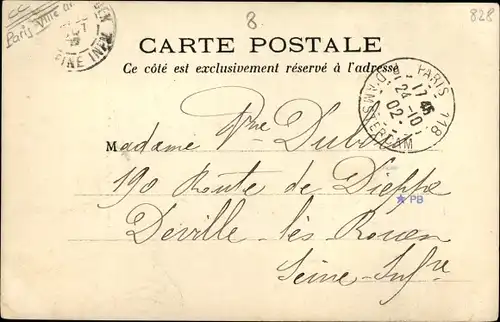 8.
828
Paris Ville
SEINE INFRE
CARTE POSTALE
Ce côté est exclusivement réservé à l'adresse
PARIS 118
17 45
24 -10
02
R. D'AMSTERDAM
Madame Vve Dubois
190 Route de Dieppe
PB
Deville-lès-Rouen
Seine-Infre